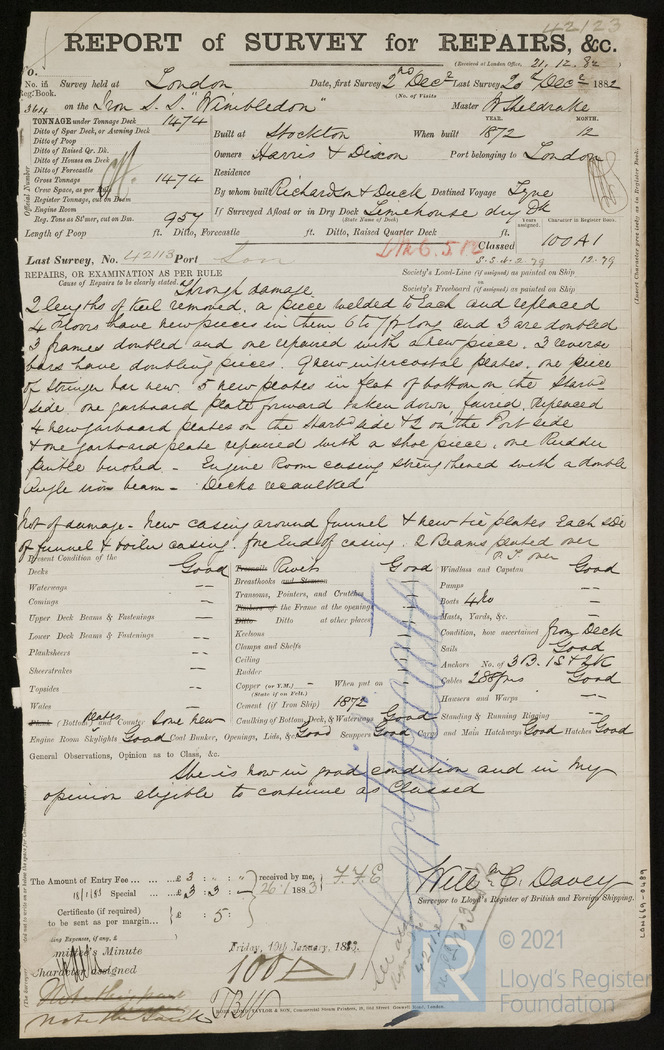 42123
REPORT of SURVEY for REPAIRS, &c.
(Received at London Office, 21.12.82
No. in Survey held at London Date, first Survey 2nd Decr Last Survey 20th Decr 1882
Reg. Book. (No. of Visits )
364 on the Iron S.S. "Wimbledon" Master W Sheldrake
TONNAGE under Tonnage Deck 1474
Ditto of Spar Deck, or Awning Deck
Ditto of Poop
Ditto of Raised Qr. Dk.
Ditto of Houses on Deck
Ditto of Forecastle
Gross Tonnage 1474
Crew Space, as per Rule
Register Tonnage, cut on Beam
Engine Room
Reg. Tons as St'mer, cut on Bm. 957
Official Number
YEAR. MONTH.
Built at Stockton When built 1872 12
Owners Harris & Dixon Port belonging to London
Residence
By whom built Richardson & Duck Destined Voyage Tyne
If Surveyed Afloat or in Dry Dock Limehouse dry Dk
(State Name of Dock.) Years assigned. Character in Register Book.
Length of Poop ft. Ditto, Forecastle ft. Ditto, Raised Quarter Deck ft.
Classed 100A1
Last Survey, No. 42113 Port Lon
12.79
REPAIRS, OR EXAMINATION AS PER RULE
Cause of Repairs to be clearly stated. Through damage
Society's Load-Line (if assigned) as painted on Ship
or
Society's Freeboard (if assigned) as painted on Ship
2 lengths of keel removed, a piece welded to each and replaced
4 Floors have new pieces in them 6 to 7 ft long and 3 are doubled
3 frames doubled and one repaired with a new piece. 3 reverse
bars have doubling pieces. 9 new intercostal plates, one piece
of stringer bar new. 5 new plates in flat of bottom on the Starbd
side, one garboard plate forward taken down, faired, replaced
4 new garboard plates on the Starbd side & 2 on the Port side
& one garboard plate repaired with a shoe piece, one Rudder
pintle bushed - Engine Room casing strengthened with a double
angle iron beam - Decks recaulked
Not of damage - New casing around funnel & new tie plates each side
of funnel & boiler casing. fore End of casing. 2 Beams plated over
Present Condition of the
Decks Good
Waterways --
Comings --
Upper Deck Beams & Fastenings --
Lower Deck Beams & Fastenings --
Planksheers --
Sheerstrakes --
Topsides --
Wales --
Plank (Bottom) plates and Counter some new
Engine Room Skylights Good Coal Bunker, Openings, Lids, &c. Good Scuppers Good Cargo and Main Hatchways Good Hatches Good
Treenails Rivets Good
Breasthooks and Stemson
Transoms, Pointers, and Crutches
Timbers of the Frame at the opening
Ditto Ditto at other places
Keelsons
Clamps and Shelfs
Ceiling
Rudder
Copper (or Y.M.) - When put on
(State if on Felt.)
Cement (if Iron Ship) 1872
Caulking of Bottom, Deck, & Waterways Good
Windlass and Capstan Good
Pumps --
Boats 4 No --
Masts, Yards, &c. --
Condition, how ascertained from Deck
Sails Good
Anchors No. of 3B. 1S & 2K
Cables 288 fms Good
Hawsers and Warps --
Standing & Running Rigging --
General Observations, Opinion as to Class, &c.
She is now in good condition and in my
opinion eligible to continue as Classed
The Amount of Entry Fee ... ... £3 : " : "
18/1/83 Special ... £3 : 3 : -
received by me, 26.1.1883
F.F.E
Certificate (if required) to be sent as per margin... £ : 5 :
Willm C. Davey
Surveyor to Lloyd's Register of British and Foreign Shipping.
Committee's Minute Friday, 19th January, 1883.
Character assigned 100A
LON669-0489
© 2021
LR
Lloyd's Register
Foundation